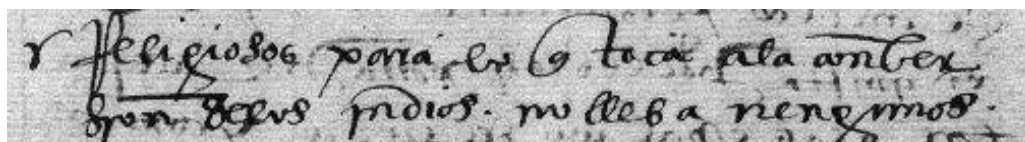 y Religiosos para lo q toca a la conber
sion de los indios. no lleba nengunos.